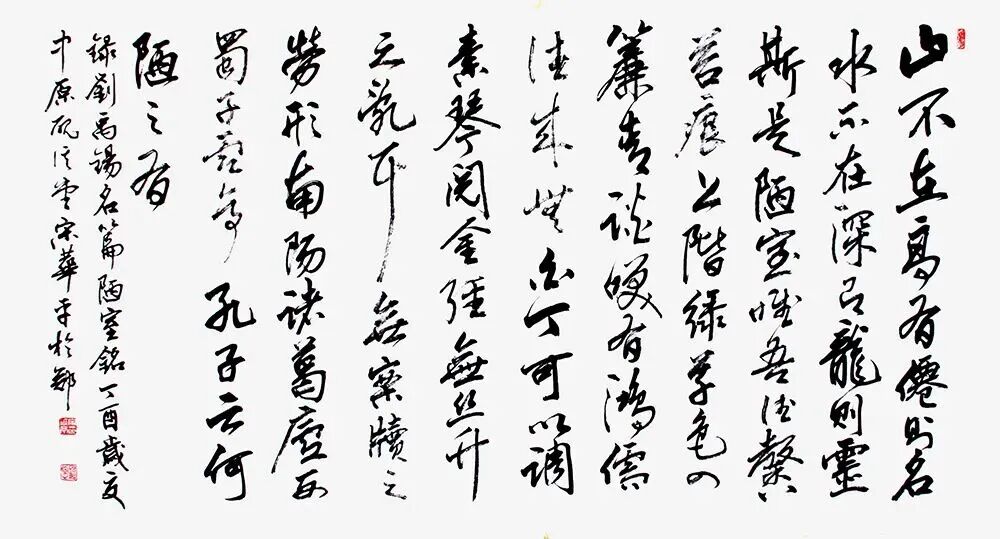 山不在高有僊則名
水不在深有龍則靈
斯是陋室惟吾德馨
苔痕上階綠草色入
簾青談笑有鴻儒
往來無白丁可以調
素琴閱金經無絲竹
之亂耳無案牘之
勞形南陽諸葛廬西
蜀子雲亭孔子云何
陋之有
錄劉禹錫名篇陋室銘丁酉歲夏
中原宋華平於鄭